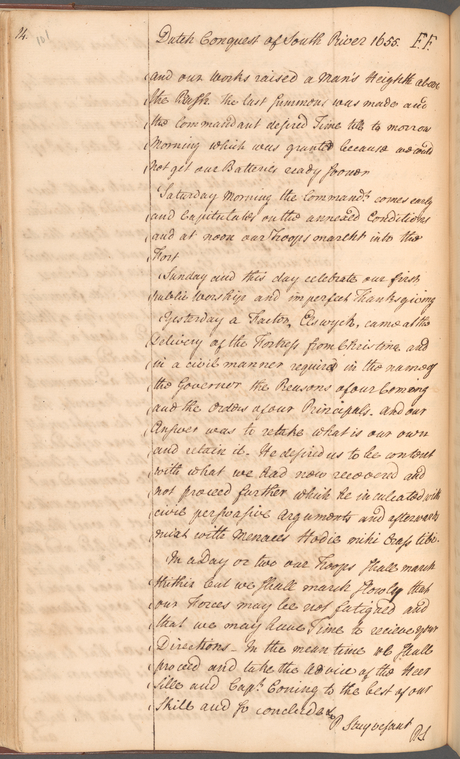 14.
101
Dutch Conquest of South River 1655. F.F.
and our works raised a Man's Heighth above
the Bush. the last Summons was made and
the Commandant desired Time till to morrow
Morning which was granted because we could
not get our Batteries ready sooner
Saturday Morning the Commandt. comes early
and Capitulates on the annexed Conditions
and at noon our Troops marcht into the
Fort
Sunday and this day celebrate our first
public worship and imperfect Thanksgiving
Yesterday a Factor, Elswych, came at the
Delivery of the Fortress from Christina and
in a civil manner required in the name of
the Governor the Reasons of our Coming
and the Orders of our Principals. and our
Answer was to retake what is our own
and retain it. He desired us to be content
with what we had now recovered and
not proceed further which he inculcated with
civil perswasive arguments and afterwards
mixt with Menaces Hodie mihi Cras tibi.
In a day or two our Troops shall march
thither but we shall march slowly that
our Forces may be not fatigued and
that we may have Time to recieve your
Directions - In the mean time we shall
proceed and take the advice of the Heer
Sille and Capt. Coning to the best of our
Skill and so conclude &c
P Stuyvesant